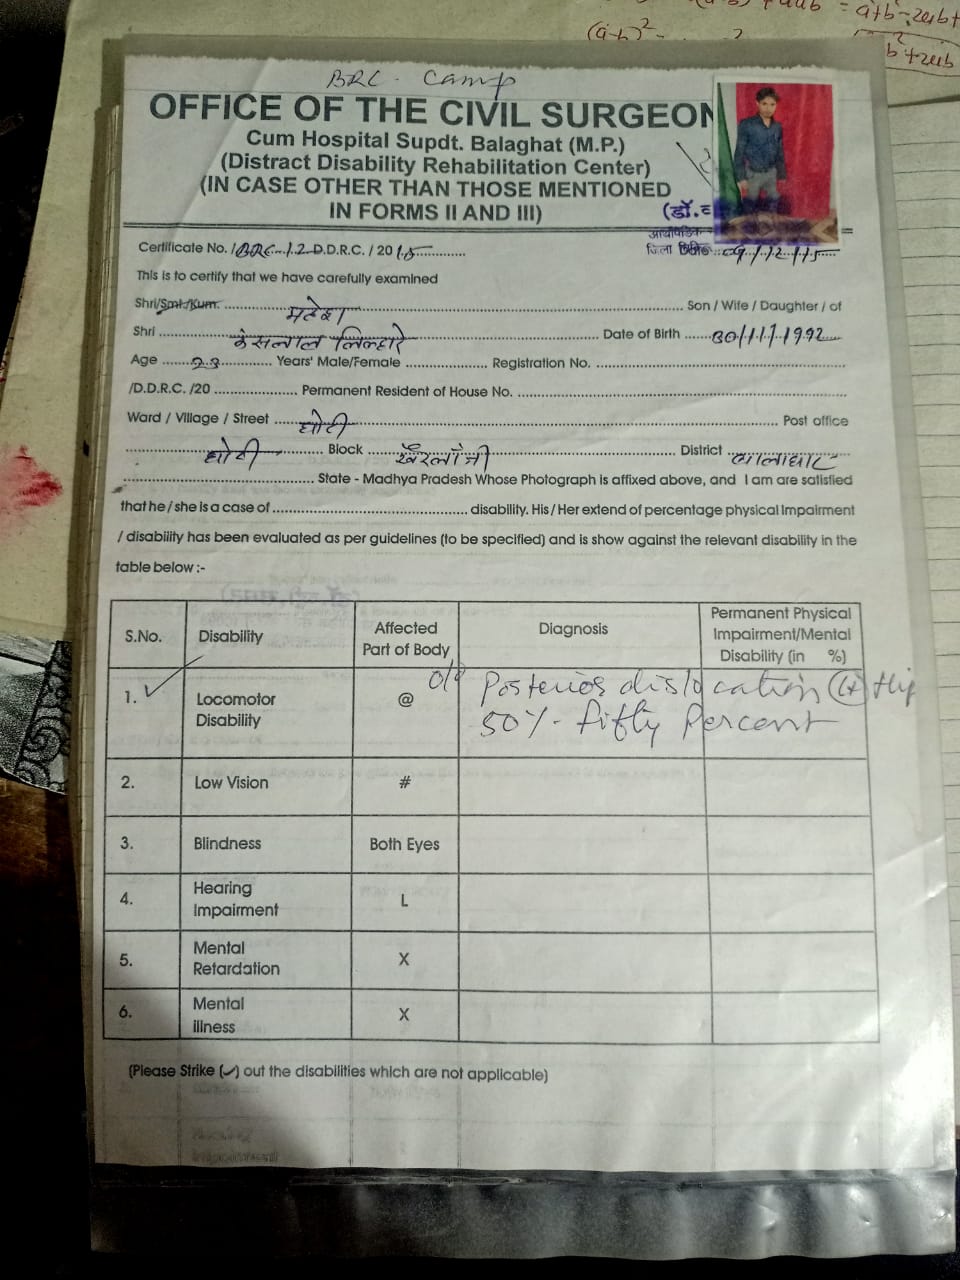 BRC - Camp
OFFICE OF THE CIVIL SURGEON
Cum Hospital Supdt. Balaghat (M.P.)
(Distract Disability Rehabilitation Center)
(IN CASE OTHER THAN THOSE MENTIONED
IN FORMS II AND III)
(डॉ.
Certificate No. /BRC-12 D.D.R.C. / 2015
09/12/15
This is to certify that we have carefully examined
Shri/Smt./Kum. महेश Son / Wife / Daughter / of
Shri केसलाल लिल्हारे Date of Birth 30/11/1992
Age 23 Years' Male/Female Registration No.
/D.D.R.C. /20 Permanent Resident of House No.
Ward / Village / Street घोटी Post office
घोटी Block खैरलाँजी District बालाघाट
State - Madhya Pradesh Whose Photograph is affixed above, and I am are satisfied
that he / she is a case of disability. His / Her extend of percentage physical Impairment
/ disability has been evaluated as per guidelines (to be specified) and is show against the relevant disability in the
table below :-
S.No. Disability Affected Part of Body Diagnosis Permanent Physical Impairment/Mental Disability (in %)
1. Locomotor Disability @ Posterior dislocation Hip
50% - fifty Percent
2. Low Vision #
3. Blindness Both Eyes
4. Hearing Impairment L
5. Mental Retardation X
6. Mental illness X
(Please Strike (✓) out the disabilities which are not applicable)